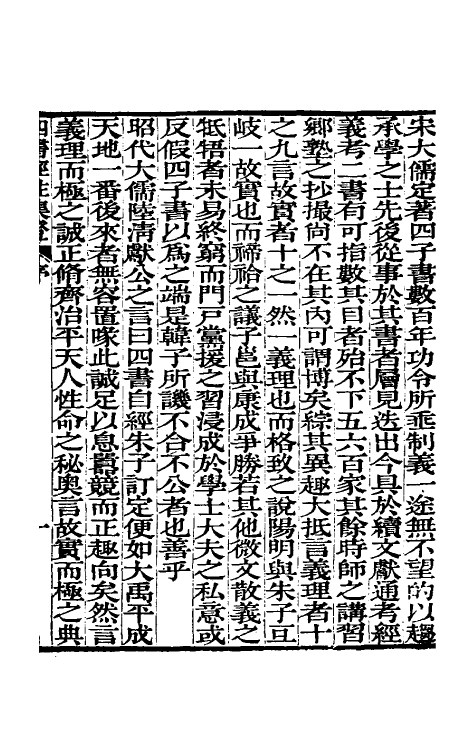 宋大儒定著四子書數百年功令所垂制義一途無不望的以趨
承學之士先後從事於其書者層見迭出今具於續文獻通考經
義考二書有可指數其目者殆不下五六百家其餘時師之講習
鄉塾之抄撮尚不在其內可謂博矣綜其異趣大抵言義理者十
之九言故實者十之一然一義理也而格致之說陽明與朱子互
岐一故實也而禘祫之議子邕與康成爭勝若其他微文散義之
牴牾者未易終窮而門戸黨援之習浸成於學士大夫之私意或
反假四子書以為之端是韓子所譏不合不公者也善乎
昭代大儒陸清獻公之言曰四書自經朱子訂定便如大禹平成
天地一番後來者無容置喙此誠足以息囂競而正趣向矣然言
義理而極之誠正脩齊治平天人性命之秘奧言故實而極之典
四書經註集證 序 一